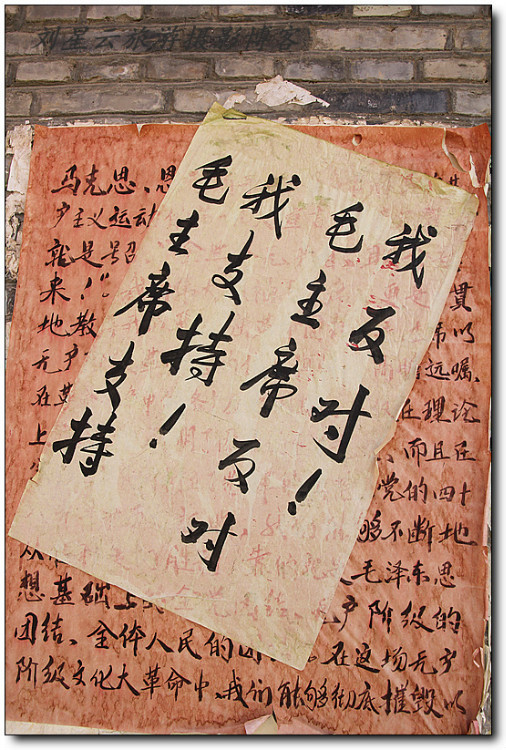 刘星云旅游摄影博客
毛主席支持
我支持！
毛主席反对
我反对！
马克思、恩
产主义运动
就是号
来！" 贯
地教 席以
无产 远瞩、
在 理论
上 而且在
党的四十
够不断地
毛泽东思
想基础上 产阶级的
团结、全体人民的团 在这场无产
阶级文化大革命中，我们能够彻底摧毁以